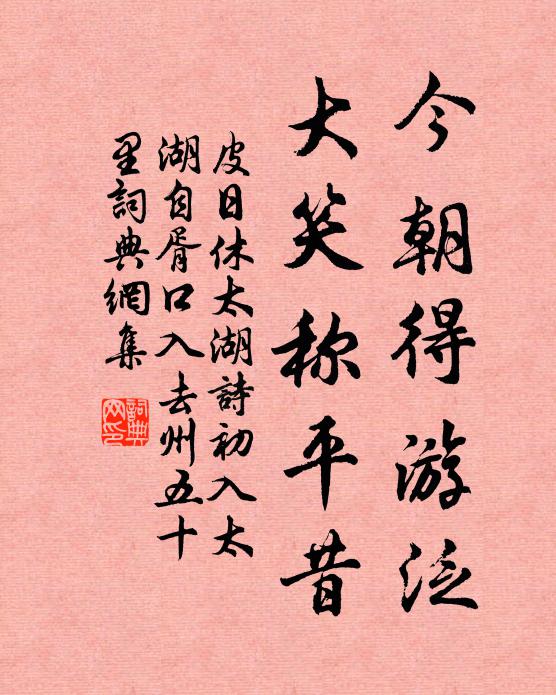 今朝得游泛
大笑称平昔
皮日休太湖詩初入太
湖自胥口入去州五十
里詞典網集
詞典
网印